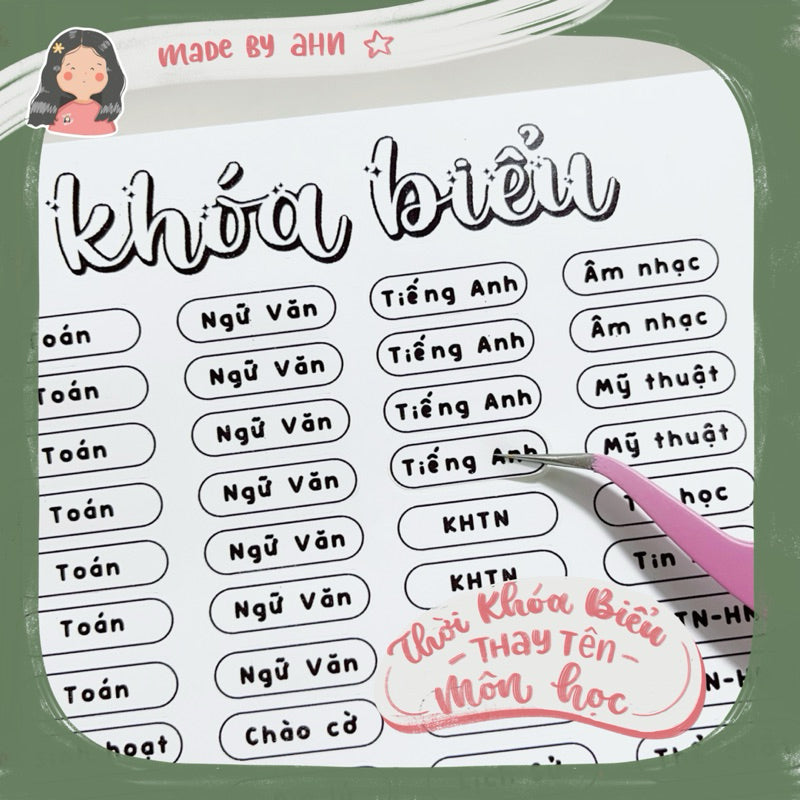 MADE BY AHN
khóa biểu
Ngữ Văn
Tiếng Anh
Âm nhạc
Toán
Ngữ Văn
Tiếng Anh
Âm nhạc
Toán
Ngữ Văn
Tiếng Anh
Mỹ thuật
Toán
Ngữ Văn
Tiếng Anh
Mỹ thuật
Toán
Ngữ Văn
KHTN
học
Toán
Ngữ Văn
KHTN
Tin
Toán
Ngữ Văn
Chào cờ
Thời Khóa Biểu
- THAY TÊN -
Môn học